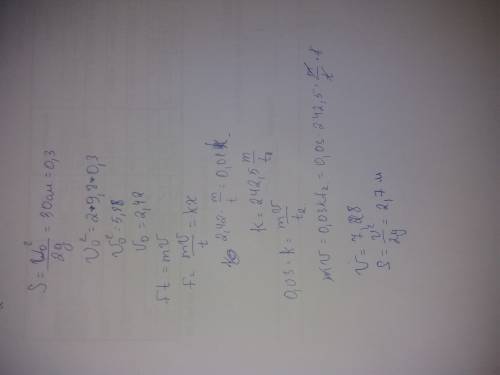 S = v₀²/2g = 30см = 0,3
v₀² = 2*9,8*0,3
v₀² = 5,88
v₀ = 2,42
Ft = mv
F = mv/t = kx
2,42 · m/t = 0,01k
k = 242,5 m/t₂
0,03 · k = mv/t₂
mv = 0,03kt₂ = 0,03 · 242,5 · m/t · t
v = 7,28
S = v²/2g = 2,7 м